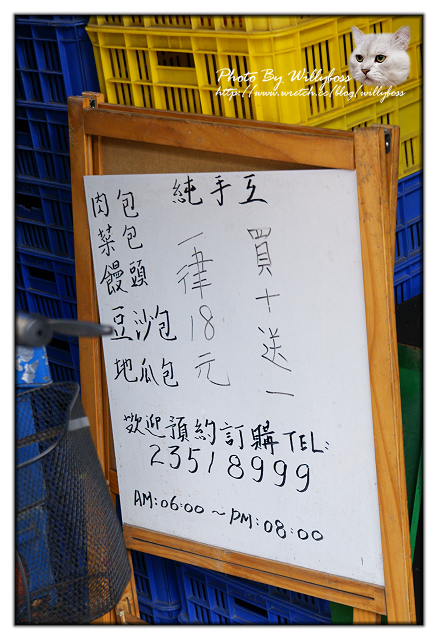 Photo By Willyboss
http://www.wretch.cc/blog/willyboss
純手工
肉包
菜包
饅頭
豆沙包
地瓜包
一律18元
買十送一
歡迎預約訂購TEL:
23518999
AM:06:00～PM:08:00